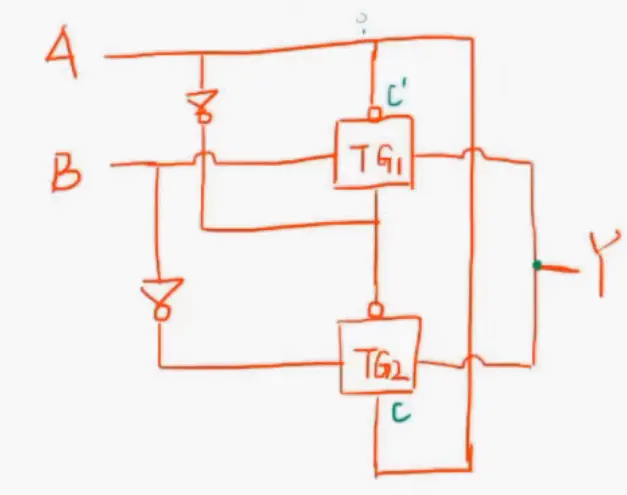 A
C'
TG1
B
Y
TG2
C